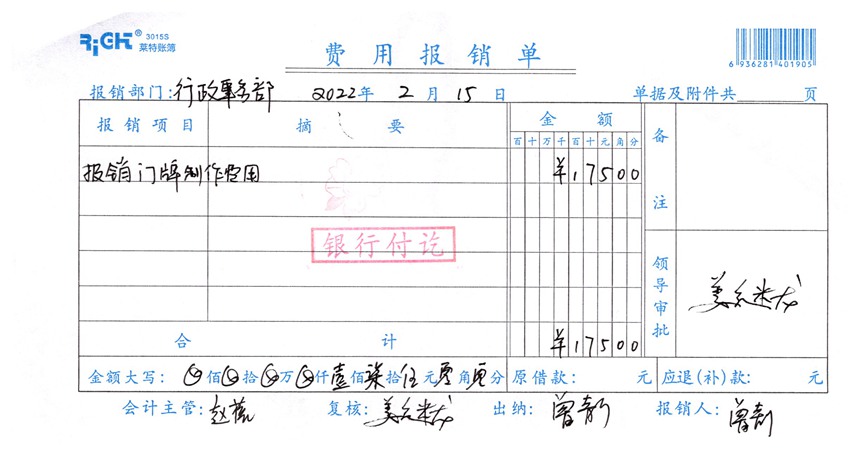 RiGHT® 3015S
莱特账簿
费用报销单
6 936281 401905
报销部门:行政事务部 2022年 2月 15日 单据及附件共 页
报销项目 摘要 金额 备注
百十万千百十元角分
报销门牌制作费用 ¥17500
银行付讫
领导审批
合计 ¥17500
金额大写: 佰 拾 万 仟壹佰柒拾伍元零角零分 原借款: 元 应退(补)款: 元
会计主管: 复核: 出纳: 曾靓 报销人: 曾靓